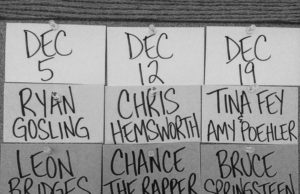 DEC
5
DEC
12
DEC
19
RYAN
GOSLING
CHRIS
HEMSWORTH
TINA FEY
&
AMY POEHLER
LEON
BRIDGES
CHANCE
THE RAPPER
BRUCE
SPRINGSTEEN